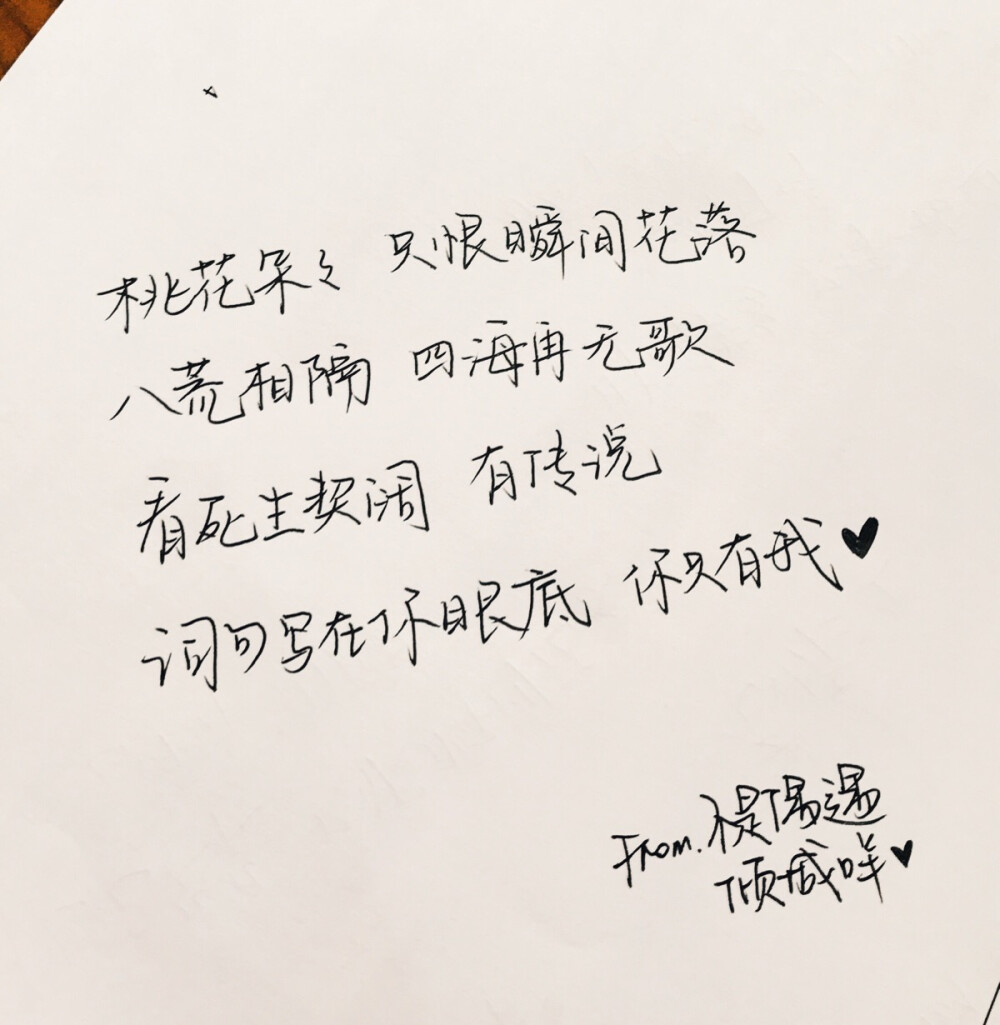 桃花朵々 只恨瞬间花落
八荒相隔 四海再无歌
看死生契阔 有传说
词句写在你眼底 你只有我♥
From. 禔偶遇
倾城咩♥